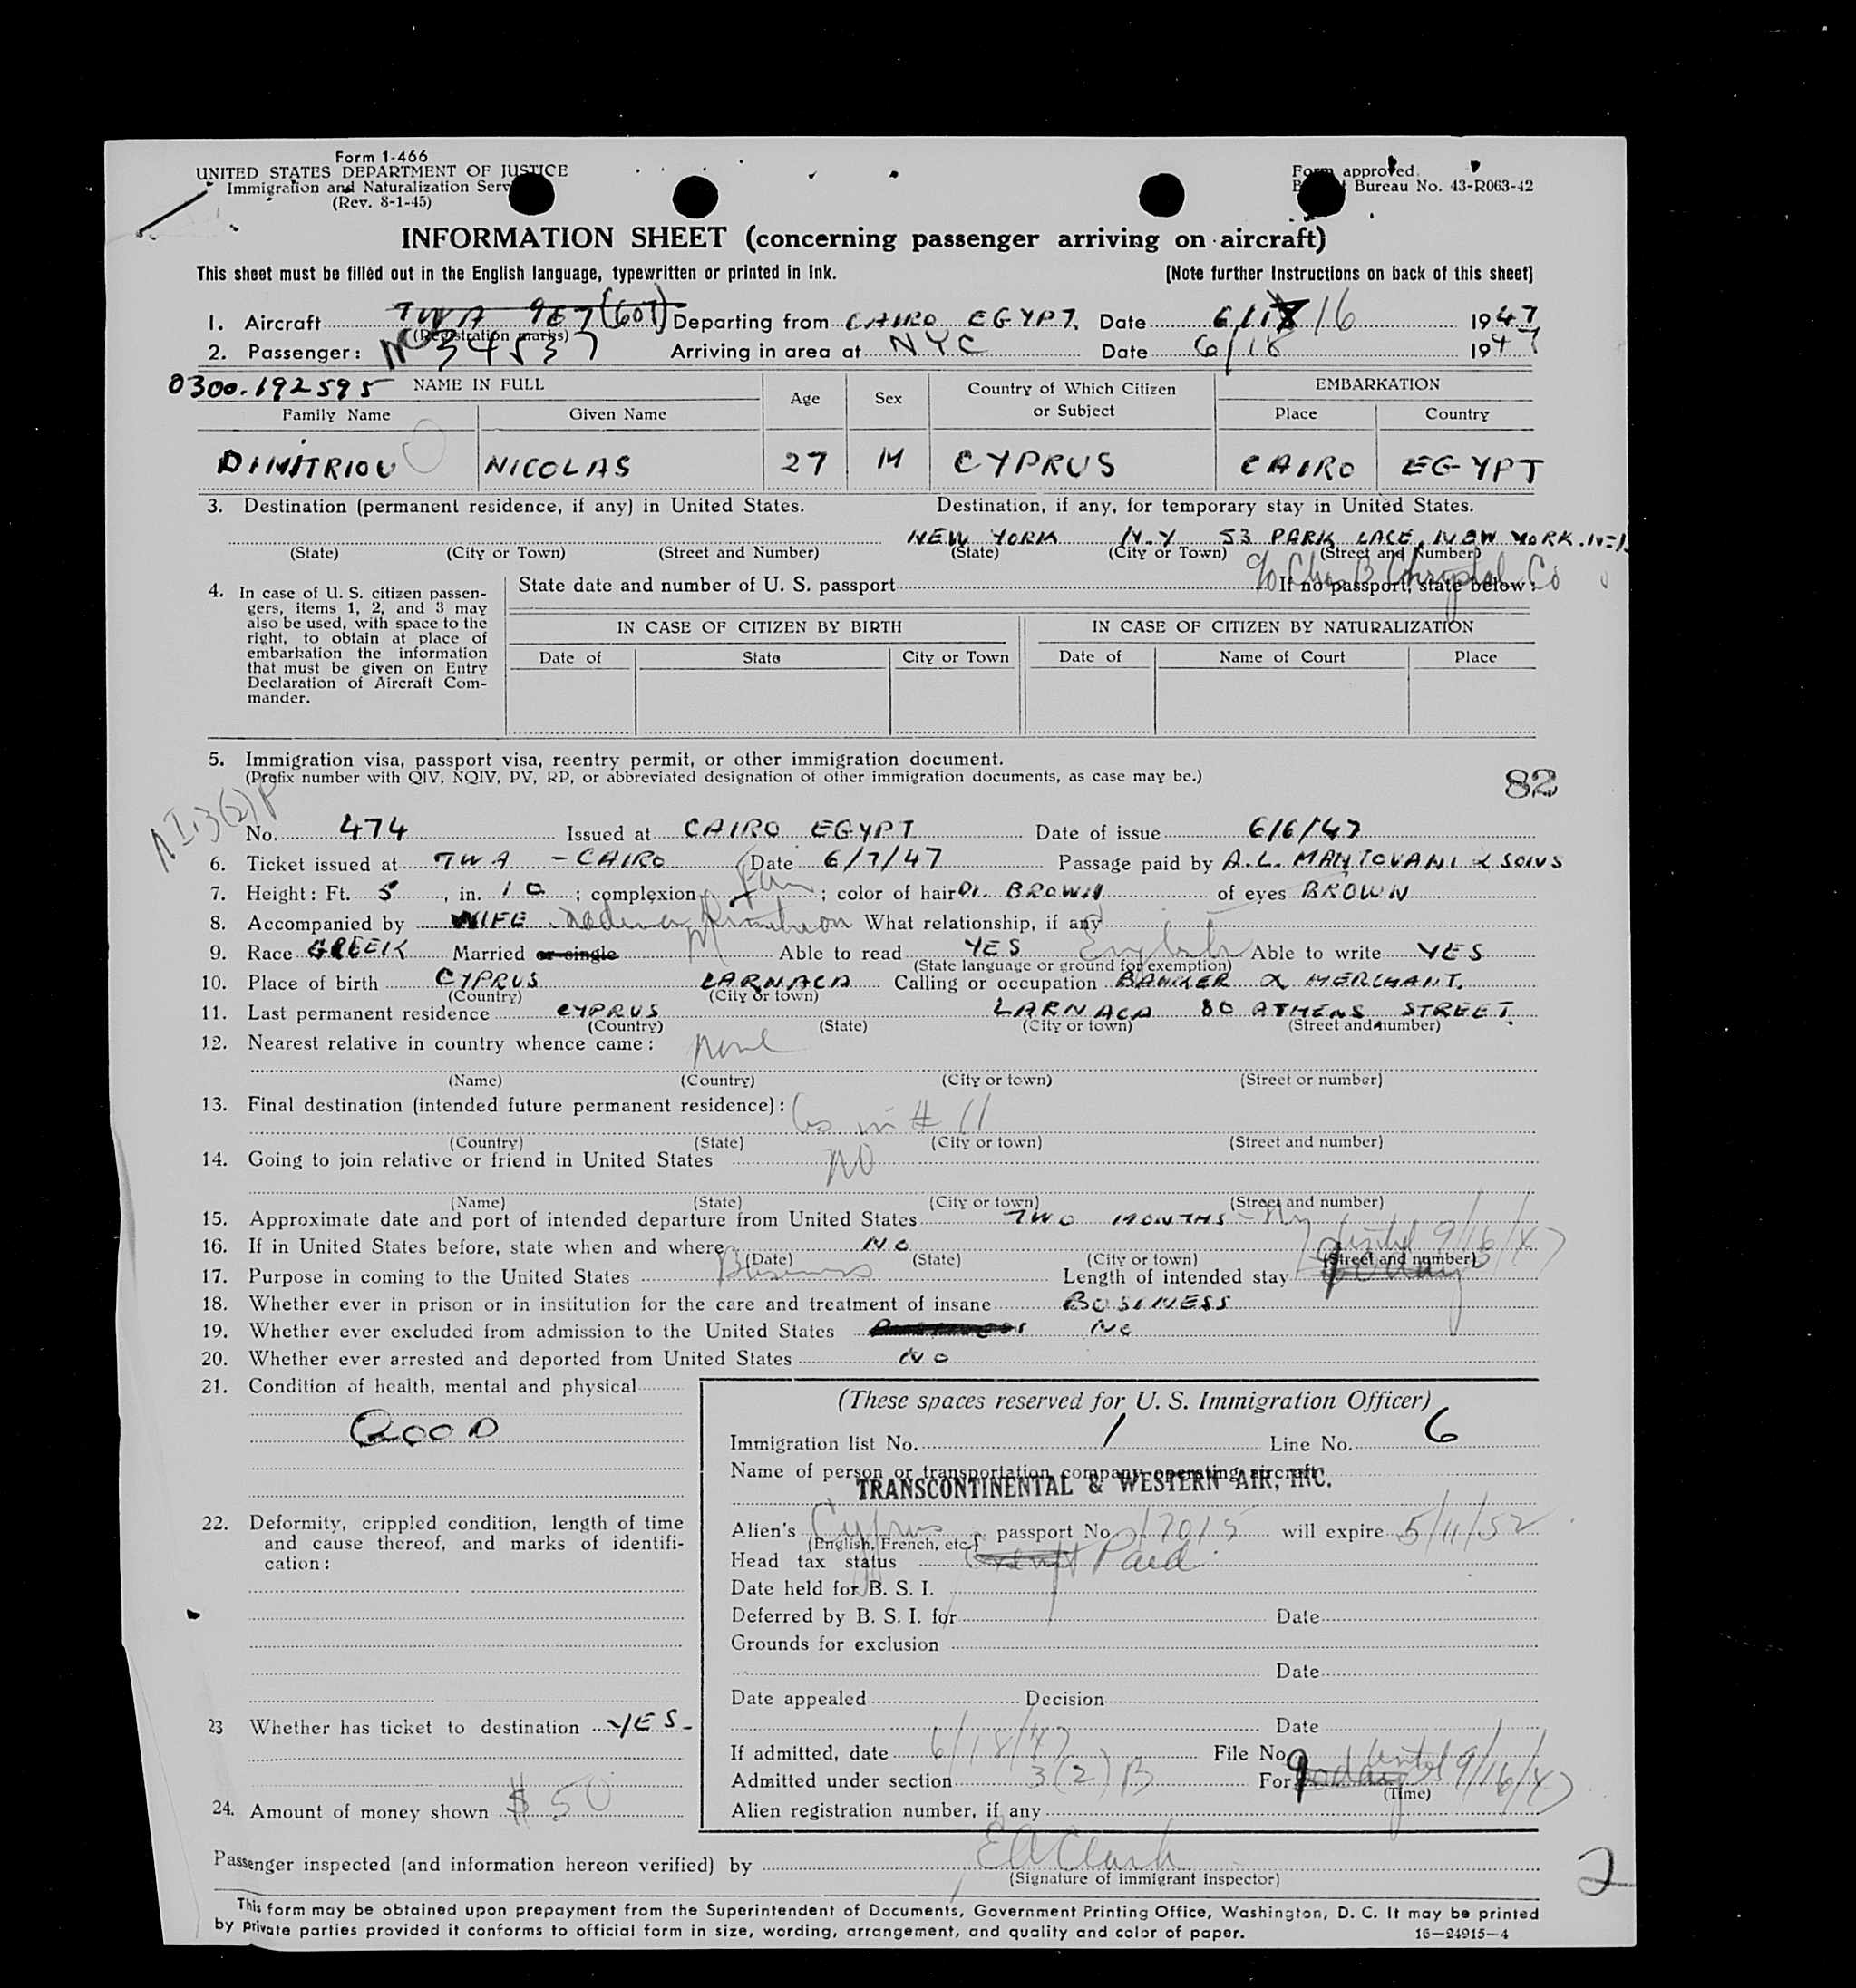 Form I-466
UNITED STATES DEPARTMENT OF JUSTICE
Immigration and Naturalization Serv
(Rev. 8-1-45)
Form approved.
Bureau No. 43-R063-42
INFORMATION SHEET (concerning passenger arriving on aircraft)
This sheet must be filled out in the English language, typewritten or printed in ink.
[Note further Instructions on back of this sheet]
1. Aircraft TWA 967 (607) Departing from CAIRO EGYPT. Date 6/1 16 1947
(Registration marks)
2. Passenger: NC 34537 Arriving in area at NYC Date 6/18 1947
0300.192595 NAME IN FULL Age Sex Country of Which Citizen or Subject EMBARKATION
Family Name Given Name Place Country
DIMITRIOU NICOLAS 27 M CYPRUS CAIRO EGYPT
3. Destination (permanent residence, if any) in United States. Destination, if any, for temporary stay in United States.
NEW YORK N.Y 53 PARK LACE, NEW YORK.
(State) (City or Town) (Street and Number) (State) (City or Town) (Street and Number)
c/o Chas B Chrystal Co
4. In case of U. S. citizen passen-
gers, items 1, 2, and 3 may
also be used, with space to the
right, to obtain at place of
embarkation the information
that must be given on Entry
Declaration of Aircraft Com-
mander.
State date and number of U. S. passport If no passport, state below:
IN CASE OF CITIZEN BY BIRTH IN CASE OF CITIZEN BY NATURALIZATION
Date of State City or Town Date of Name of Court Place
5. Immigration visa, passport visa, reentry permit, or other immigration document.
(Prefix number with QIV, NQIV, PV, RP, or abbreviated designation of other immigration documents, as case may be.)
82
No. 474 Issued at CAIRO EGYPT Date of issue 6/6/47
6. Ticket issued at TWA - CAIRO Date 6/7/47 Passage paid by A.L. MANTOVANI & SONS
7. Height: Ft. 5, in. 10; complexion Fair; color of hair D. BROWN of eyes BROWN
8. Accompanied by WIFE What relationship, if any
9. Race GREEK Married or single M Able to read YES English Able to write YES
(State language or ground for exemption)
10. Place of birth CYPRUS LARNACA Calling or occupation BANKER & MERCHANT.
(Country) (City or town)
11. Last permanent residence CYPRUS LARNACA 80 ATHENS STREET.
(Country) (State) (City or town) (Street and number)
12. Nearest relative in country whence came: None
(Name) (Country) (City or town) (Street or number)
13. Final destination (intended future permanent residence): as in # 11
(Country) (State) (City or town) (Street and number)
14. Going to join relative or friend in United States NO
(Name) (State) (City or town) (Street and number)
15. Approximate date and port of intended departure from United States TWO MONTHS - Ny
16. If in United States before, state when and where NO
(Date) (State) (City or town) (Street and number)
until 9/16/47
17. Purpose in coming to the United States Business Length of intended stay
18. Whether ever in prison or in institution for the care and treatment of insane BOSINESS
19. Whether ever excluded from admission to the United States NO
20. Whether ever arrested and deported from United States NO
21. Condition of health, mental and physical
GOOD
(These spaces reserved for U. S. Immigration Officer)
Immigration list No. 1 Line No. 6
Name of person or transportation company operating aircraft
TRANSCONTINENTAL & WESTERN AIR, INC.
22. Deformity, crippled condition, length of time
and cause thereof, and marks of identifi-
cation:
Alien's Cyprus passport No. 17015 will expire 5/11/52
(English, French, etc.)
Head tax status Paid
Date held for B. S. I.
Deferred by B. S. I. for Date
Grounds for exclusion
Date
Date appealed Decision
23 Whether has ticket to destination YES-
Date
If admitted, date 6/18/47 File No.
Admitted under section 3(2) B For until 9/16/47
(Time)
24. Amount of money shown $ 50
Alien registration number, if any
Passenger inspected (and information hereon verified) by EA Clark
(Signature of immigrant inspector)
2
This form may be obtained upon prepayment from the Superintendent of Documents, Government Printing Office, Washington, D. C. It may be printed
by private parties provided it conforms to official form in size, wording, arrangement, and quality and color of paper. 16—24915-4